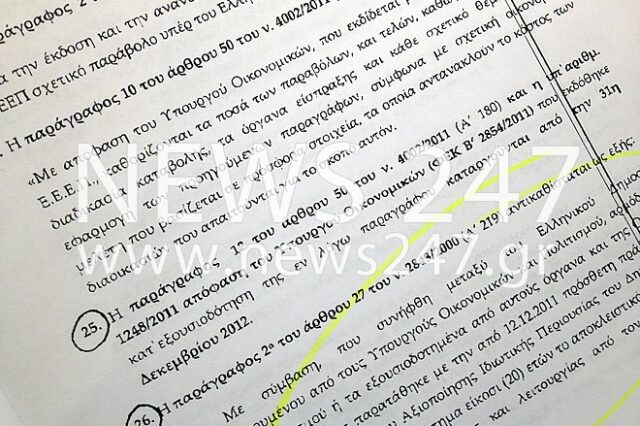 παράγραφος 2
α την έκδοση και την ανανέ
ΕΕΠ σχετικό παράβολο υπέρ του Ελλην
Η παράγραφος 10 του άρθρου 50 του ν. 4002/2011
«Με απόφαση του Υπουργού Οικονομικών, που εκδίδεται
Ε.Ε.Ε.Π., καθορίζονται τα ποσά των παραβόλων, και τελών, καθώς
διαδικασία καταβολής, τα όργανα είσπραξης και κάθε σχετικό θέμα
εφαρμογή των προηγούμενων παραγράφων, σύμφωνα με σχετική οικονομ
μελέτη που βασίζεται σε στοιχεία, τα οποία αντανακλούν το κόστος των
διαδικασιών που απαιτούνται για το σκοπό αυτόν.
25. Η παράγραφος 12 του άρθρου 50 του ν. 4002/2011 (Α΄ 180) και η υπ' αριθμ.
1248/2011 απόφαση του Υπουργού Οικονομικών (ΦΕΚ Β΄ 2854/2011) που εκδόθηκε
κατ' εξουσιοδότηση της εν λόγω παραγράφου καταργούνται από την 31η
Δεκεμβρίου 2012.
26. Η παράγραφος 2α του άρθρου 27 του ν. 2843/2000 (Α΄ 219) αντικαθίσταται ως εξής:
Με σύμβαση, που συνήφθη μεταξύ του Ελληνικού Δημοσ
ουμένου από τους Υπουργούς Οικονομικών, Πολιτισμού,
σμού ή τα εξουσιοδοτημένα από αυτούς όργανα και της
παρατάθηκε με την από 12.12.2011 πρόσθετη πρά
Αξιοποίησης Ιδιωτικής Περιουσίας του Δη
τημα είκοσι (20) ετών το αποκλειστικ
και λειτουργίας από του
NEWS 247
www.news247.gr